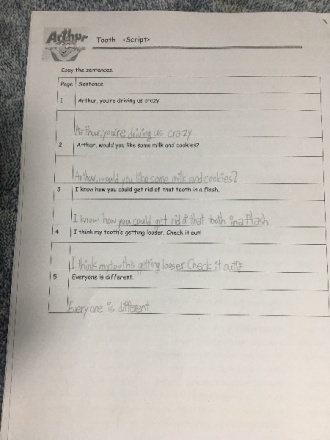 Arthur
Tooth <Script>
Copy the sentences.
Page Sentence
1 Arthur, you're driving us crazy
Arthur, you're driving us crazy
2 Arthur, would you like some milk and cookies?
Arthur, would you like some milk and cookies?
3 I know how you could get rid of that tooth in a flash.
I know how you could get rid of that tooth in a flash
4 I think my tooth's getting looser. Check it out!
I think my tooth's getting looser Check it out!
5 Everyone is different.
Everyone is different